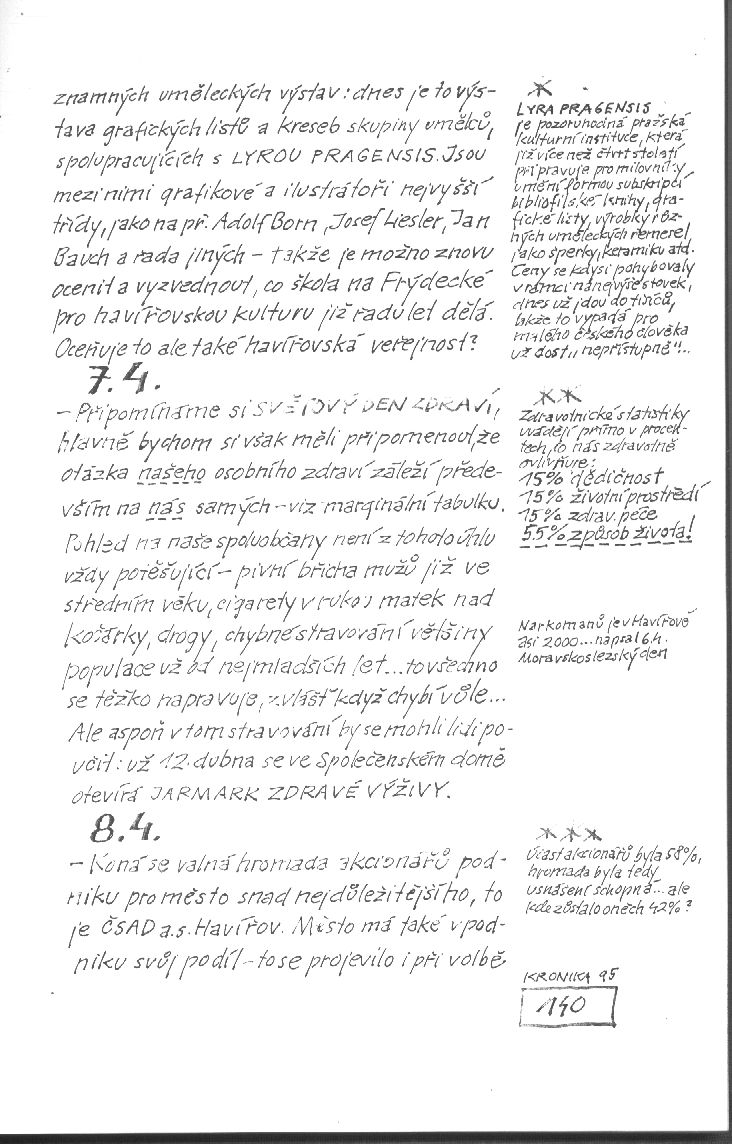 známných uměleckých výstav: dnes je to výs-
tava grafických listů a kreseb skupiny umělců,
spolupracujících s LYROU PRAGENSIS. Jsou
mezi nimi grafikové a ilustrátoři nejvyšší
třídy, jako na př. Adolf Born, Josef Liesler, Jan
Bauch a řada jiných – takže je možno znovu
ocenit a vyzvednout, co škola na Frýdecké
pro havířovskou kulturu již radu let dělá.
Oceňuje to ale také havířovská veřejnost?
7.4.
– Připomínáme si SVĚTOVÝ DEN ZDRAVÍ,
hlavně bychom si však měli připomenout, že
otázka našeho osobního zdraví záleží přede-
vším na nás samých – viz marginální tabulku.
Pohled na naše spoluobčany není z tohoto úhlu
vždy potěšující – pivní břicha mužů již ve
středním věku, cigarety v rukou matek nad
kočárky, drogy, chybné stravování většiny
populace už od nejmladších let... to všechno
se těžko napravuje, zvlášť když chybí vůle...
Ale aspoň v tom stravování by se mohli lidi po-
učit: už 12. dubna se ve Společenském domě
otevírá JARMARK ZDRAVÉ VÝŽIVY.
8.4.
– Koná se valná hromada akcionářů pod-
niku pro město snad nejdůležitějšího, to
je ČSAD a.s. Havířov. Město má také v pod-
niku svůj podíl – to se projevilo i při volbě
*
LYRA PRAGENSIS
je pozoruhodná pražská
kulturní instituce, která
již více než čtvrt století
připravuje pro milovníky
umění formou subskripcí
bibliofilské knihy, gra-
fické listy, výrobky růz-
ných uměleckých řemesel,
jako šperky, keramiku atd.
Ceny se kdysi pohybovaly
v rámci nanejvýše stovek,
dnes už jdou do tisíců,
takže to vypadá pro
malého českého člověka
už dost „nepřístupně“...
**
Zdravotnické statistiky
uvádějí přímo v procen-
tech, co nás zdravotně
ovlivňuje:
15% dědičnost
15% životní prostředí
15% zdrav. péče
55% způsob života!
Narkomanů je v Havířově
asi 2000... napsal 6.4.
Moravskoslezský den
***
Účast akcionářů byla 58%,
hromada byla tedy
usnášení schopná... ale
kde zůstalo oněch 42%?
KRONIKA 95
140